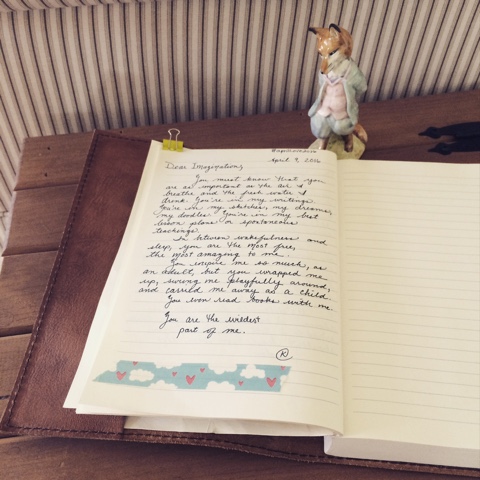 April 9, 2016
Dear Imagination,
You must know that you
are as important as the air I
breathe and the fresh water I
drink. You're in my writings.
You're in my sketches, my dreams,
my doodles. You're in my best
lesson plans or spontaneous
teachings.
In between wakefulness and
sleep, you are the most free,
the most amazing to me.
You inspire me so much, as
an adult, but you wrapped me
up, swung me playfully around,
and carried me away as a child.
You even read books with me.
You are the wildest
part of me.
K